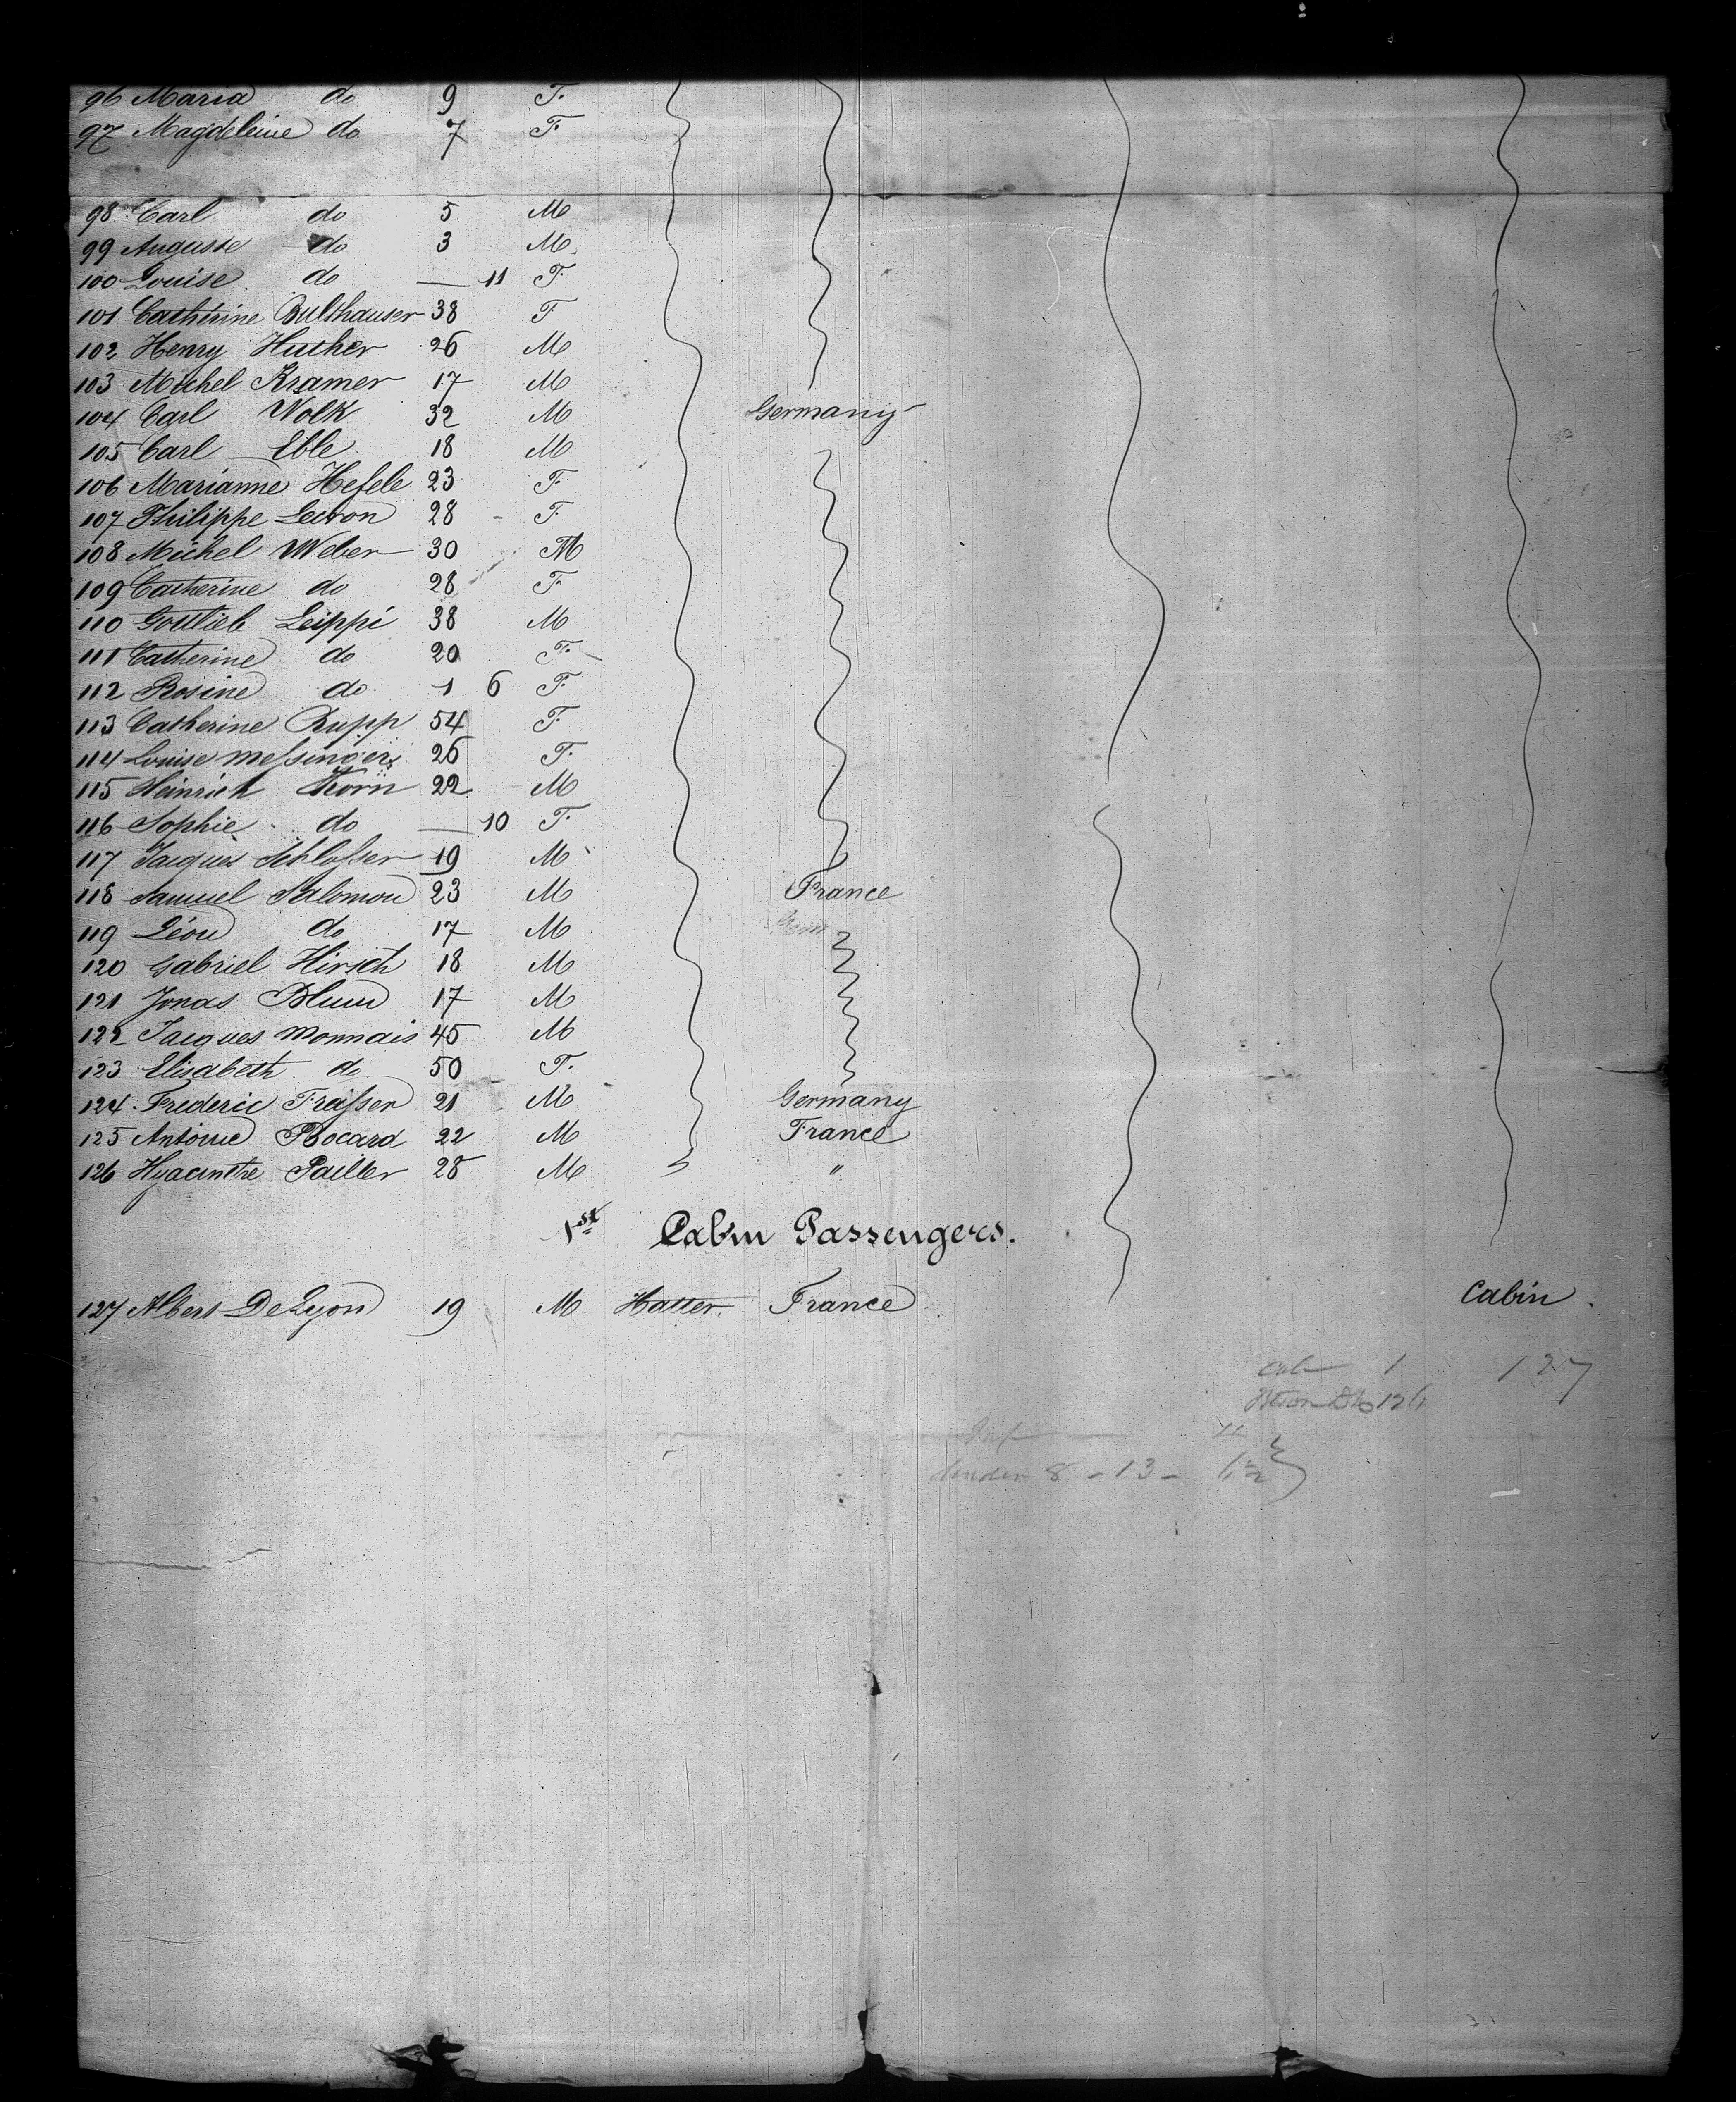 96 Maria do 9 F.
97 Magdeleine do 7 F
98 Carl do 5 M
99 Auguste do 3 M.
100 Louise do — 11 F
101 Cathérine Bulthauser 38 F
102 Henry Huther 26 M
103 Michel Kramer 17 M
104 Carl Wolk 32 M Germany
105 Carl Eble 18 M
106 Marianne Hefele 23 F
107 Philippe Leuron 28 F
108 Michel Weber 30 M
109 Catherine do 28 F
110 Gottlieb Leippi 38 M
111 Catherine do 20 F.
112 Rosine do 1 6 F
113 Catherine Rupp 54 F
114 Louise Messinger 26 F.
115 Heinrich Korn 22 M
116 Sophie do — 10 F
117 Jacques Schlosser 19 M
118 Samuel Salomon 23 M France
119 Léon do 17 M
120 Gabriel Hirsch 18 M
121 Jonas Blum 17 M
122 Jacques Monnais 45 M
123 Elisabeth do 50 F.
124 Frederic Fraisser 21 M Germany
125 Antoine Bocard 22 M France
126 Hyacinthe Pailler 28 M "
1st Cabin Passengers.
127 Albert DeLyon 19 M Hatter. France Cabin.
Cab 1 127
126
8 - 13 -